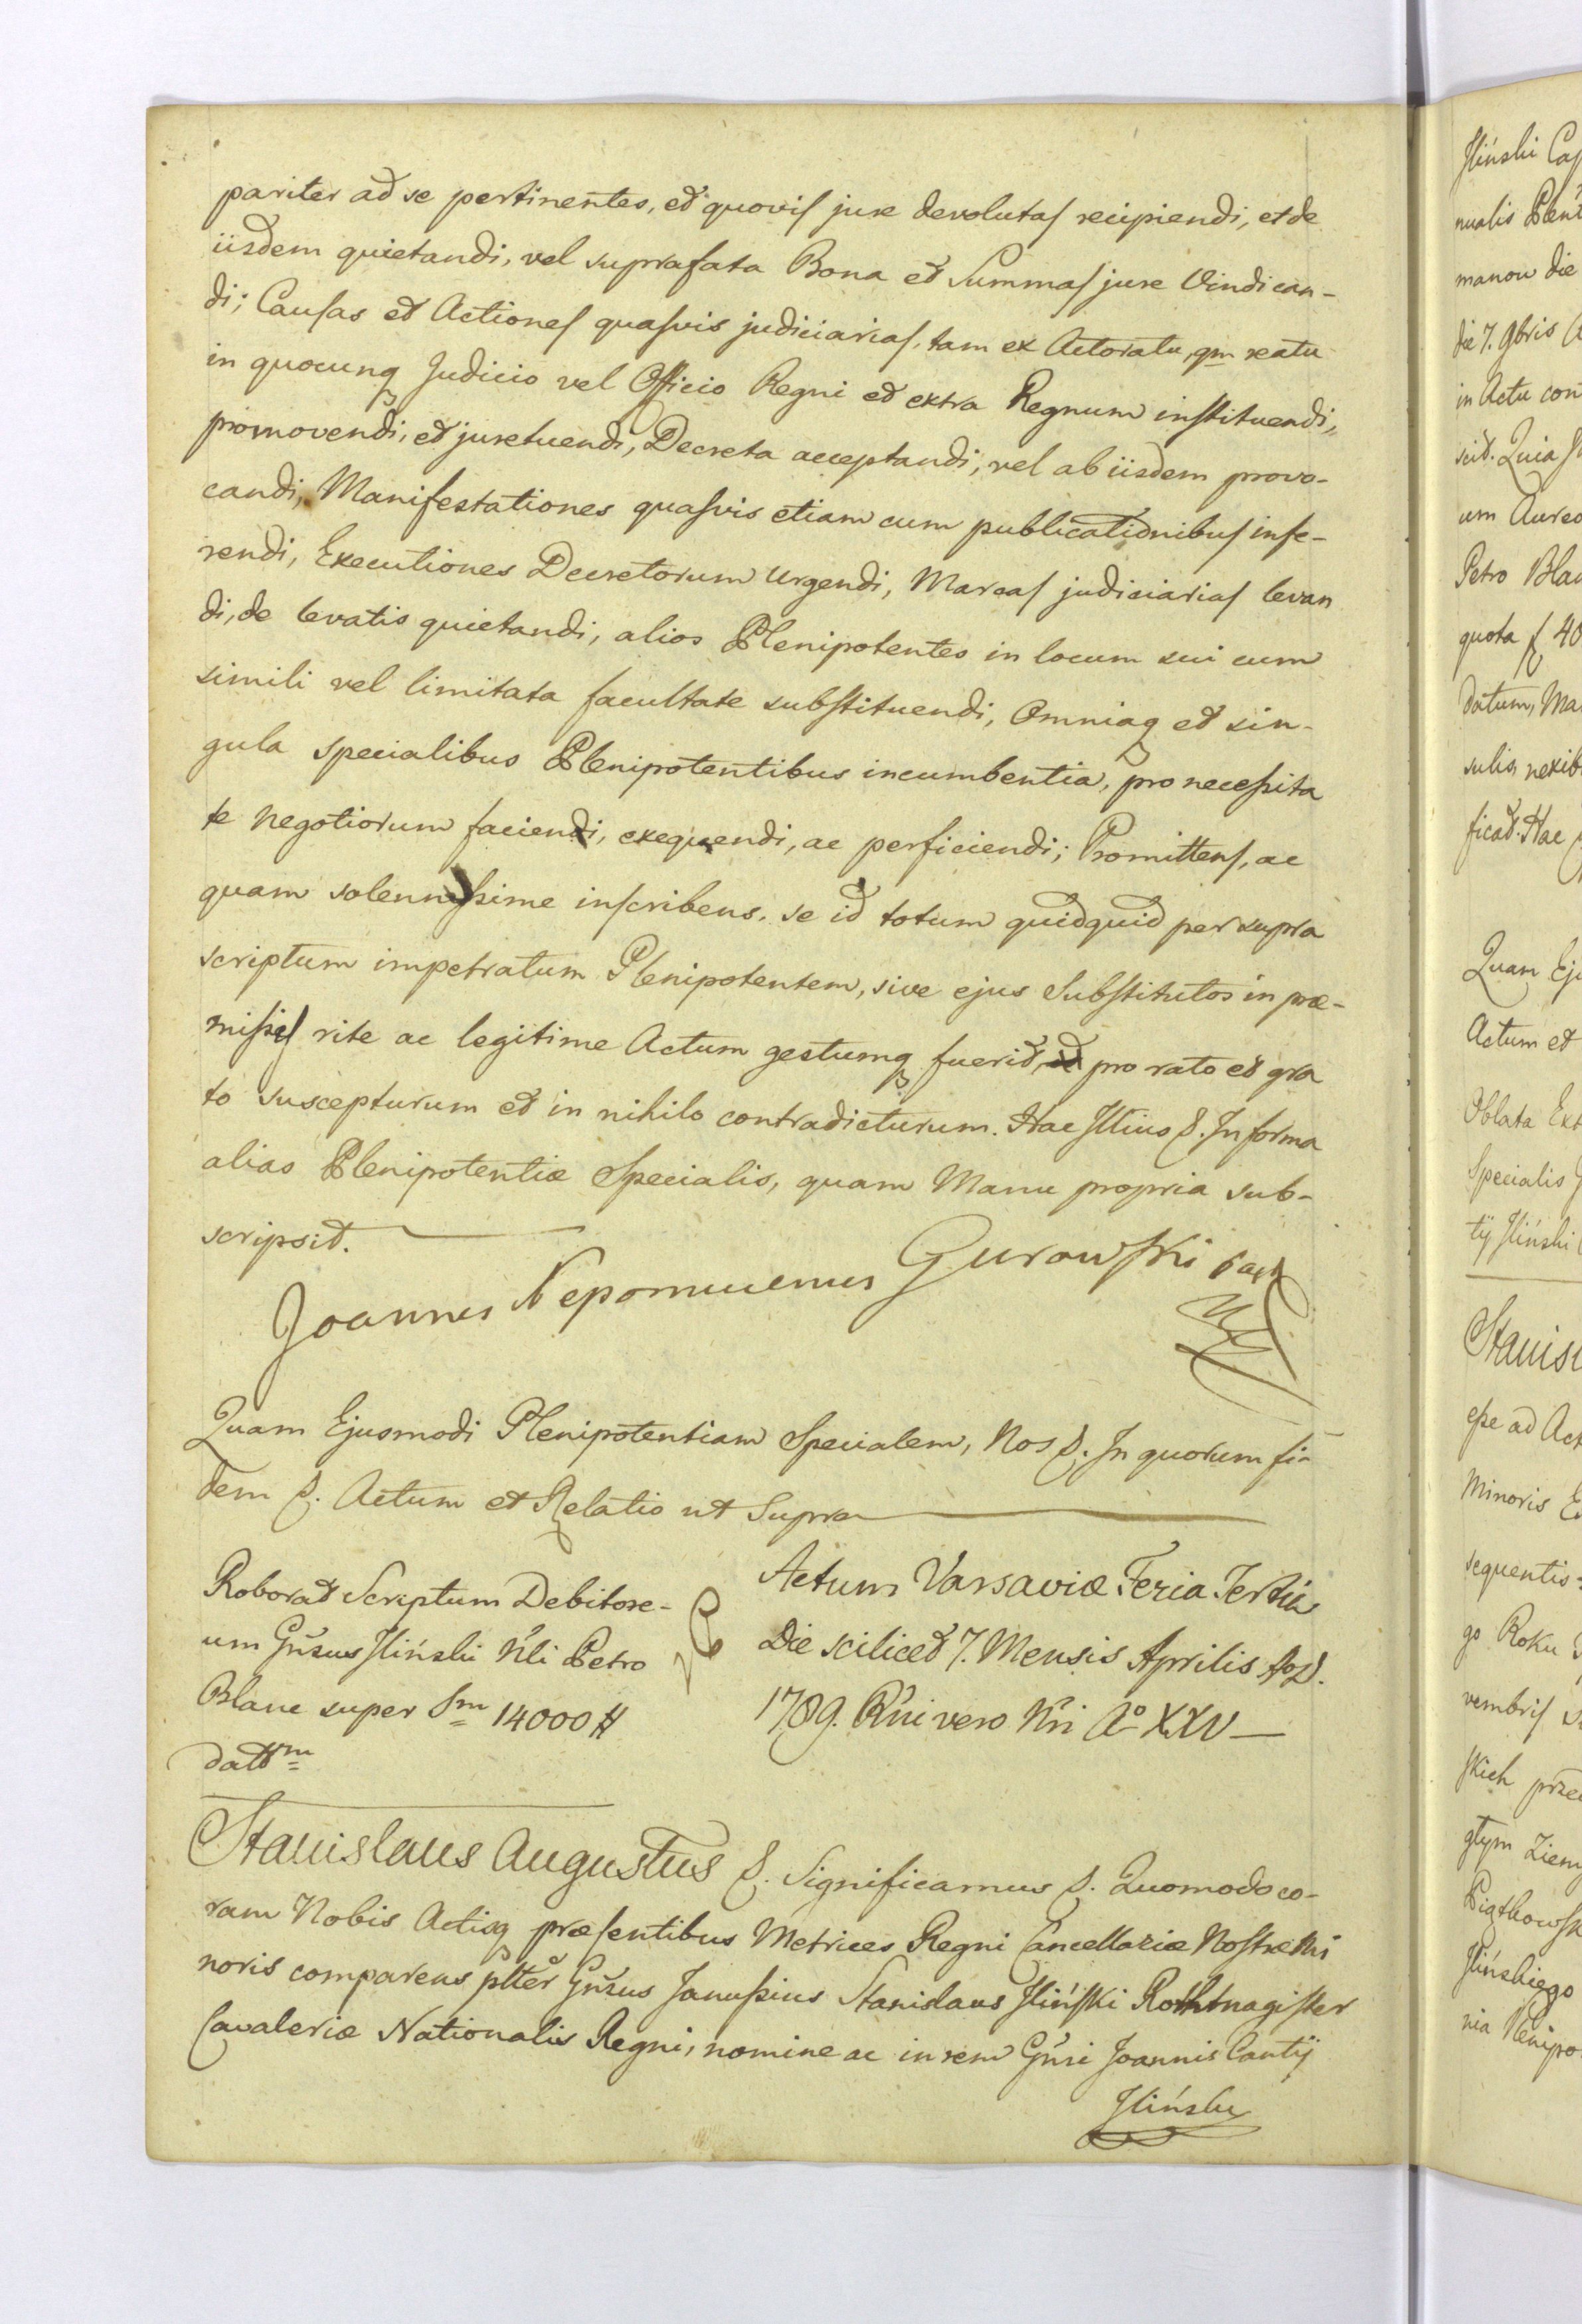 pariter ad se pertinentes, et quovis jure devolutas recipiendi, et de
iisdem quietandi, vel suprafata Bona et Summas jure Vindican-
di; Causas et Actiones quasvis judiciarias, tam ex Actoratu, qm reatu
in quocunq Judicio vel Officio Regni et extra Regnum instituendi,
promovendi, et juretuendi, Decreta acceptandi, vel ab iisdem provo-
candi, Manifestationes quasvis etiam cum publicationibus infe-
rendi, Executiones Decretorum Urgendi, Marcas judiciarias levan
di, de levatis quietandi, alios Plenipotentes in locum sui cum
simili vel limitata facultate substituendi, Omniaq et sin-
gula specialibus Plenipotentibus incumbentia, pro necessita
te negotiorum faciendi, exequendi, ac perficiendi; Promittens, ac
quam solennissime inscribens, se id totum quidquid per supra
scriptum impetratum Plenipotentem, sive ejus Substitutos in præ-
missis rite ac legitime Actum gestumq fuerit, pro rato et gra
to suscepturum et in nihilo contradicturum. Hac Illius &. In forma
alias Plenipotentiæ Specialis, quam Manu propria sub-
scripsit.
Joannes Nepomucenus Gurowski
Quam Ejusmodi Plenipotentiam Specialem, Nos &. In quorum fi-
dem &. Actum et Relatio ut Supra
Roborat Scriptum Debitore-
um Gnsus Iliński Nli Petro
Blanc super Sm 14000 #
dattm
Actum Varsaviæ Feria Tertia
Die scilicet 7. Mensis Aprilis AoD.
1789. Rni vero Nri Ao XXV
Stanislaus Augustus &. Significamus &. Quomodo co-
ram Nobis Actisq præsentibus Metrices Regni Cancellariæ Nostræ Mi
noris comparens pltter Gnsus Janussius Stanislaus Iliński Rothmagister
Cavaleriæ Nationalis Regni, nomine ac in rem Gnsi Joannis Cantij
Iliński
Iliński
manow die
in Actu con
um Aureo
quota
datum, Ma
Quam Ej
Actum et
Oblata Ext
Specialis
tij Iliński
esse ad Act
Minoris
sequentis
go Roku
skich prze
Ilińskiego
nia Plenipo